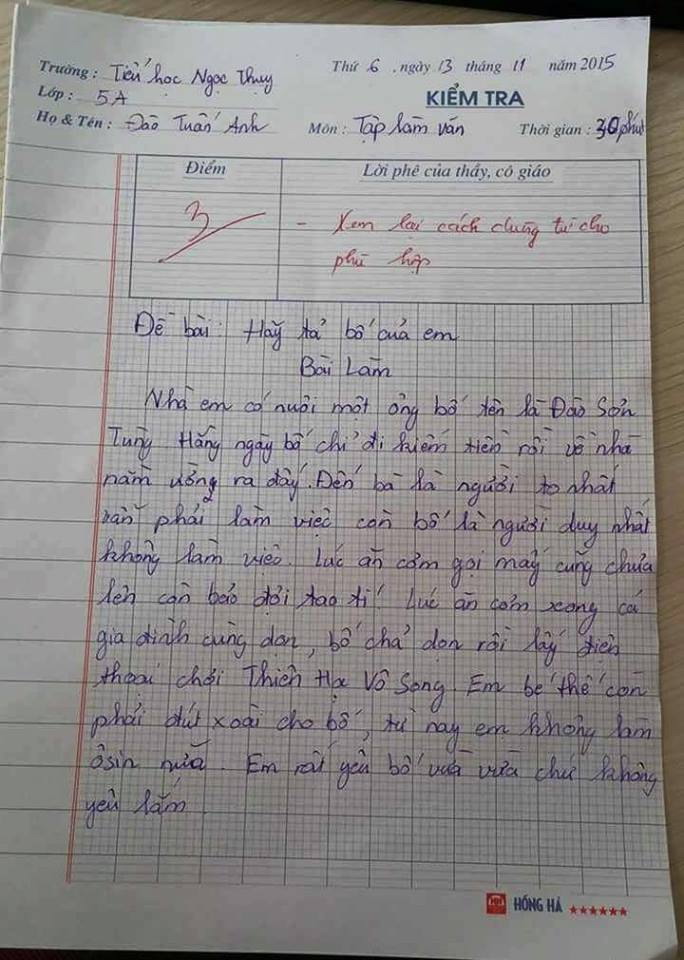 Trường : Tiểu học Ngọc Thụy
Thứ 6 , ngày 13 tháng 11 năm 2015
Lớp : 5A
KIỂM TRA
Họ & Tên : Đào Tuấn Anh
Môn : Tập làm văn
Thời gian : 30 phút
Điểm
Lời phê của thầy, cô giáo
3
- Xem lại cách dùng từ cho
phù hợp
Đề bài : Hãy tả bố của em
Bài Làm
Nhà em có nuôi một ông bố tên là Đào Sơn
Tùng Hằng ngày bố chỉ đi kiếm tiền rồi về nhà
nằm ườn ra đấy. Đến bà là người to nhất
vẫn phải làm việc còn bố là người duy nhất
không làm việc. Lúc ăn cơm gọi mãi cũng chưa
lên còn bảo đợi tao tí! Lúc ăn cơm xong cả
gia đình cùng dọn, bố chả dọn rồi lấy điện
thoại chơi Thiên Hạ Vô Song. Em bé thế còn
phải đút xoài cho bố, từ nay em không làm
ôsin nữa. Em rất yêu bố vừa vừa chứ không
yêu lắm
HH
HỒNG HÀ ★★★★★★